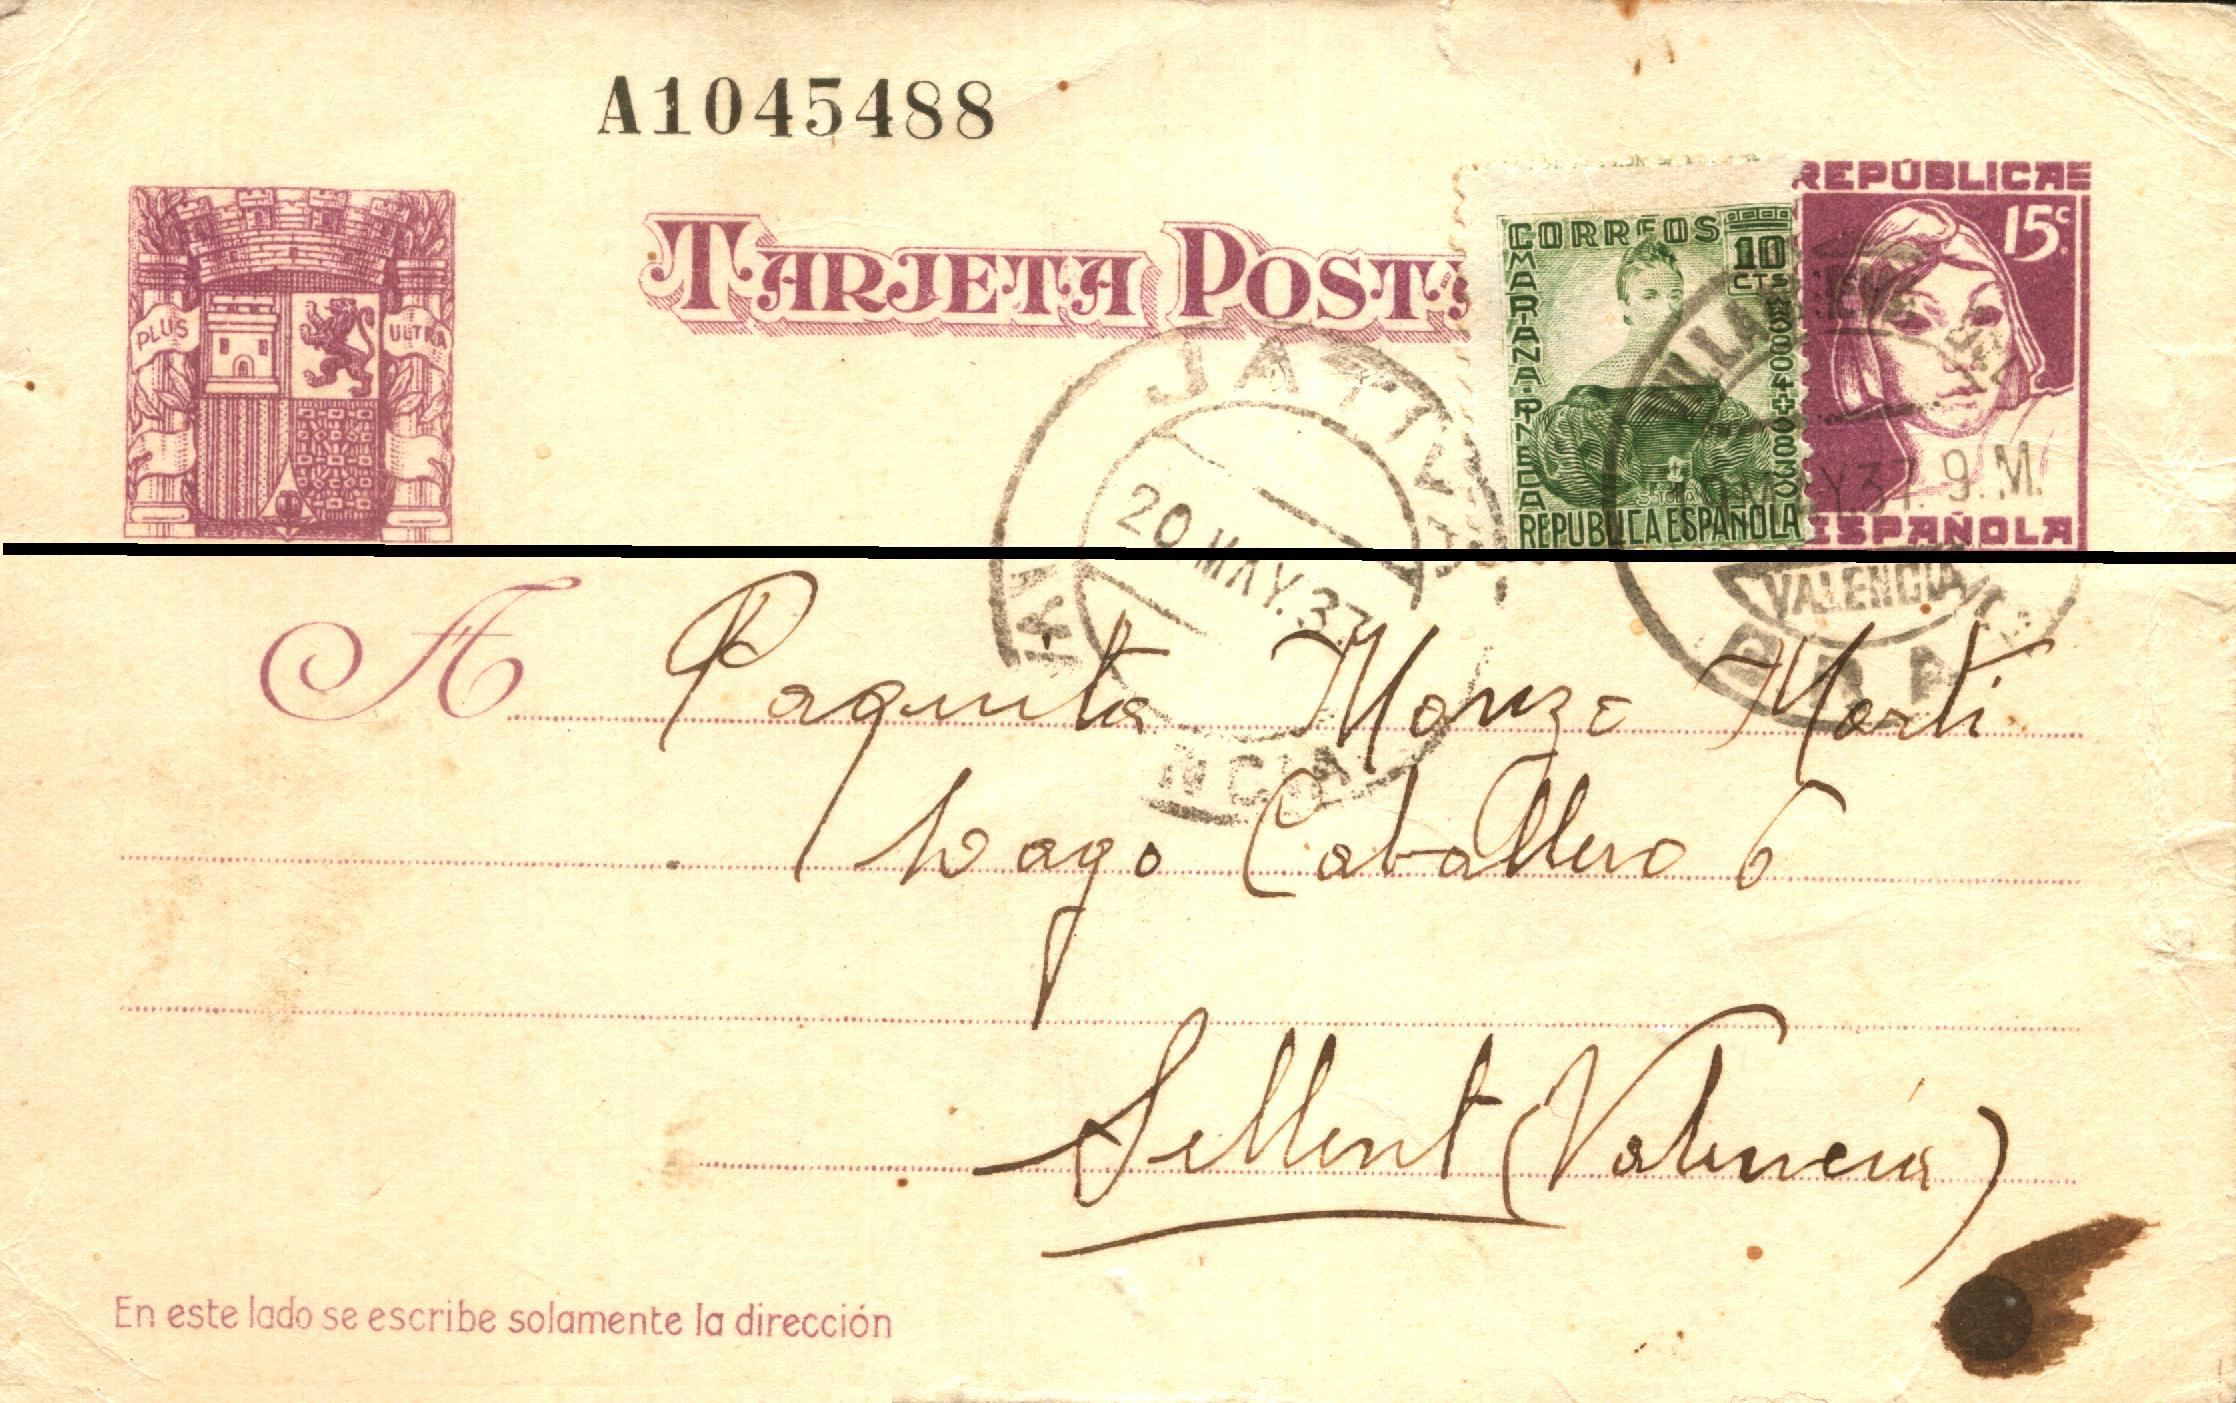 A1045488
PLUS ULTRA
TARJETA POSTA
CORREOS
10
CTS
MARIANA PINEDA
REPUBLICA ESPAÑOLA
REPÚBLICA
15c
ESPAÑOLA
JATIVA
20 MAY.37
NCIA
MAY.37. 9.M.
VALENCIA
A Paquita Marti
Largo Caballero 6
Sellent (Valencia)
En este lado se escribe solamente la dirección